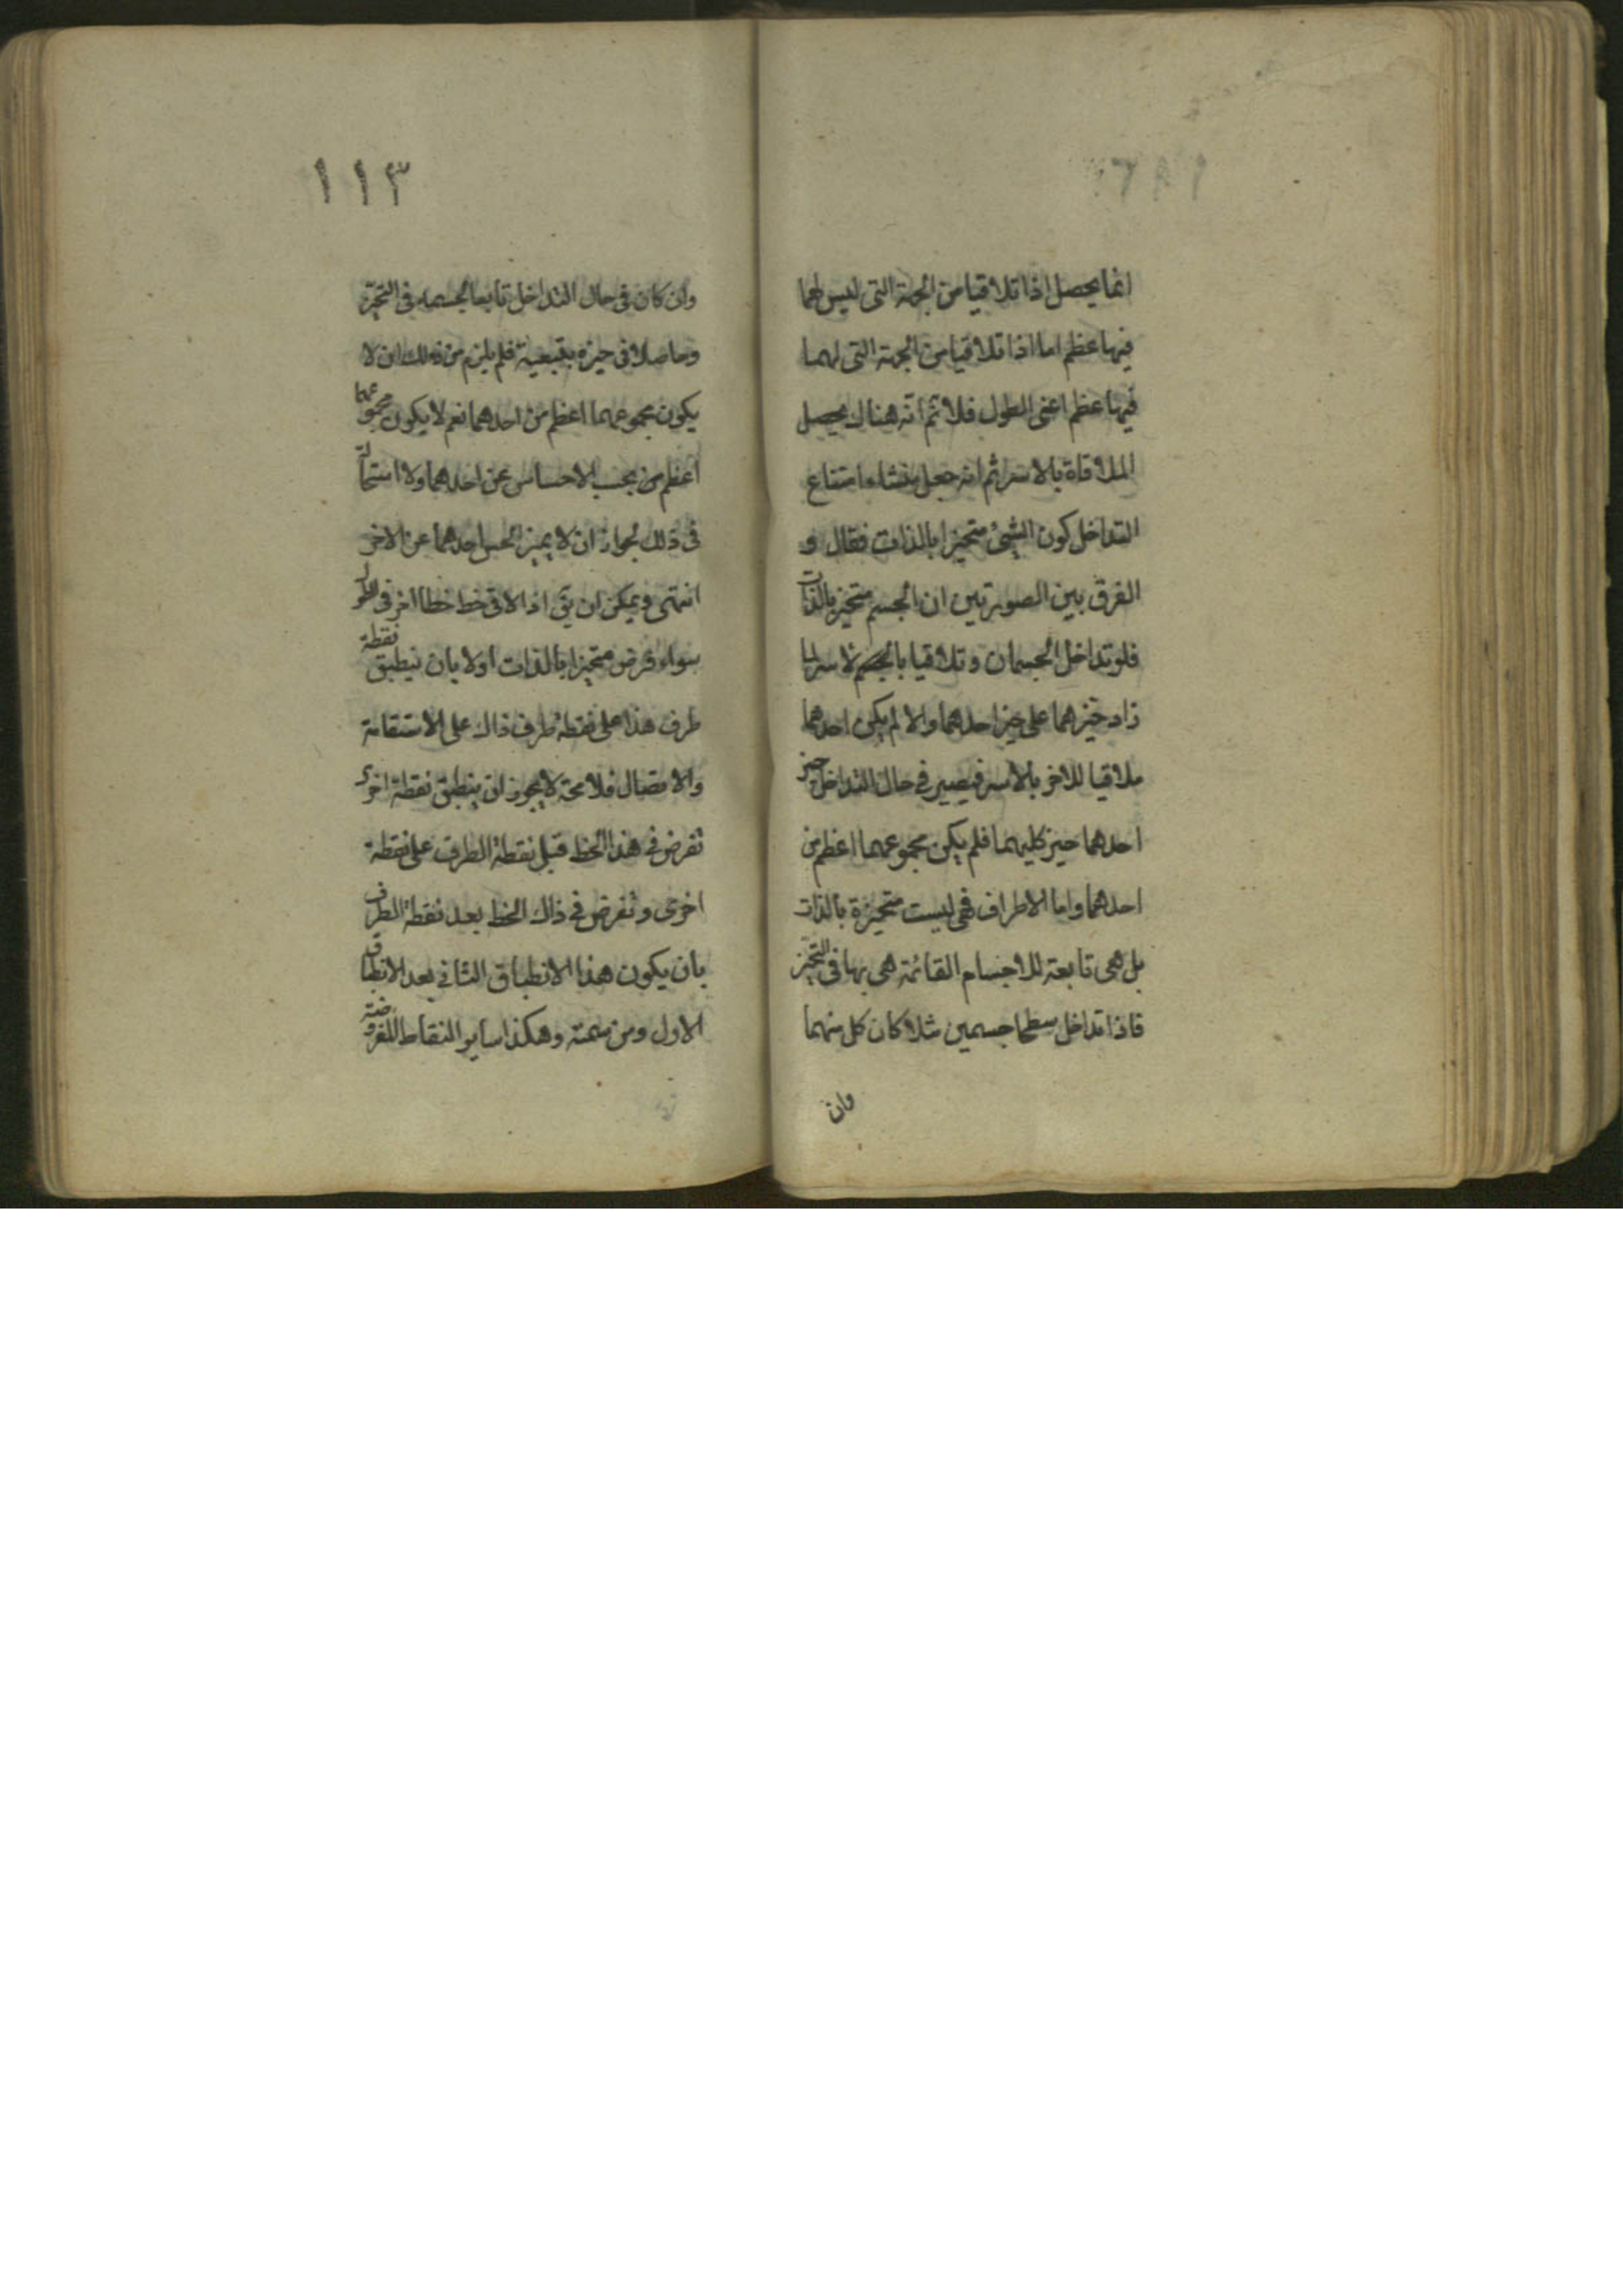 انما يحصل اذا تلاقيا من الجهة التى ليس لهما
فيها عظم اما اذا تلاقيا من الجهة التى لهما
فيها عظم اعنى الطول فلا ثم انه هناك يحصل
الملاقاة بالاسر ثم انه جعل منشاء امتناع
التداخل كون الشيئ متحيزا بالذات فقال و
الفرق بين الصورتين ان الجسم متحيز بالذات
فلو تداخل الجسمان وتلاقيا لاسرهما
زاد حيزهما على حيز احدهما والا لم يكن احدهما
ملاقيا للاخر بالاسر فيصير فى حال التداخل حيز
احدهما حيز كليهما فلم يكن مجموعهما اعظم من
احدهما واما الاطراف فهى ليست متحيزة بالذات
بل هى تابعة للاجسام القائمة هى بها فى التحيز
فاذا تداخل سطحا جسمين مثلا كان كل منهما
وان
١١٣
وان كان فى حال التداخل تابعا لجسمه فى التحيز
وحاصلا فى حيزه بتبعية فلم يلزم من ذلك ان لا
يكون مجموعهما اعظم من احدهما نعم لا يكون مجموعهما
اعظم من بحسب الاحساس عن احدهما ولا استحالة
فى ذلك لجواز ان لا يميز الحس احدهما عن الاخر
انتهى ويمكن ان يق اذ الاقى خط خطا اخر فى الطول
سواء فرض متحيزا بالذات اولا بان ينطبق نقطة
طرف هذا على نقطة طرف ذاك على الاستقامة
والاتصال فلا محة لا يجوز ان ينطبق نقطة اخرى
تفرض فى هذا الخط قبل نقطة الطرف على نقطة
اخرى وتفرض فى ذاك الخط بعد نقطة الطرف
بان يكون هذا الانطباق الثانى بعد الانطباق
الاول ومن سمته وهكذا ساير النقاط المفروضة